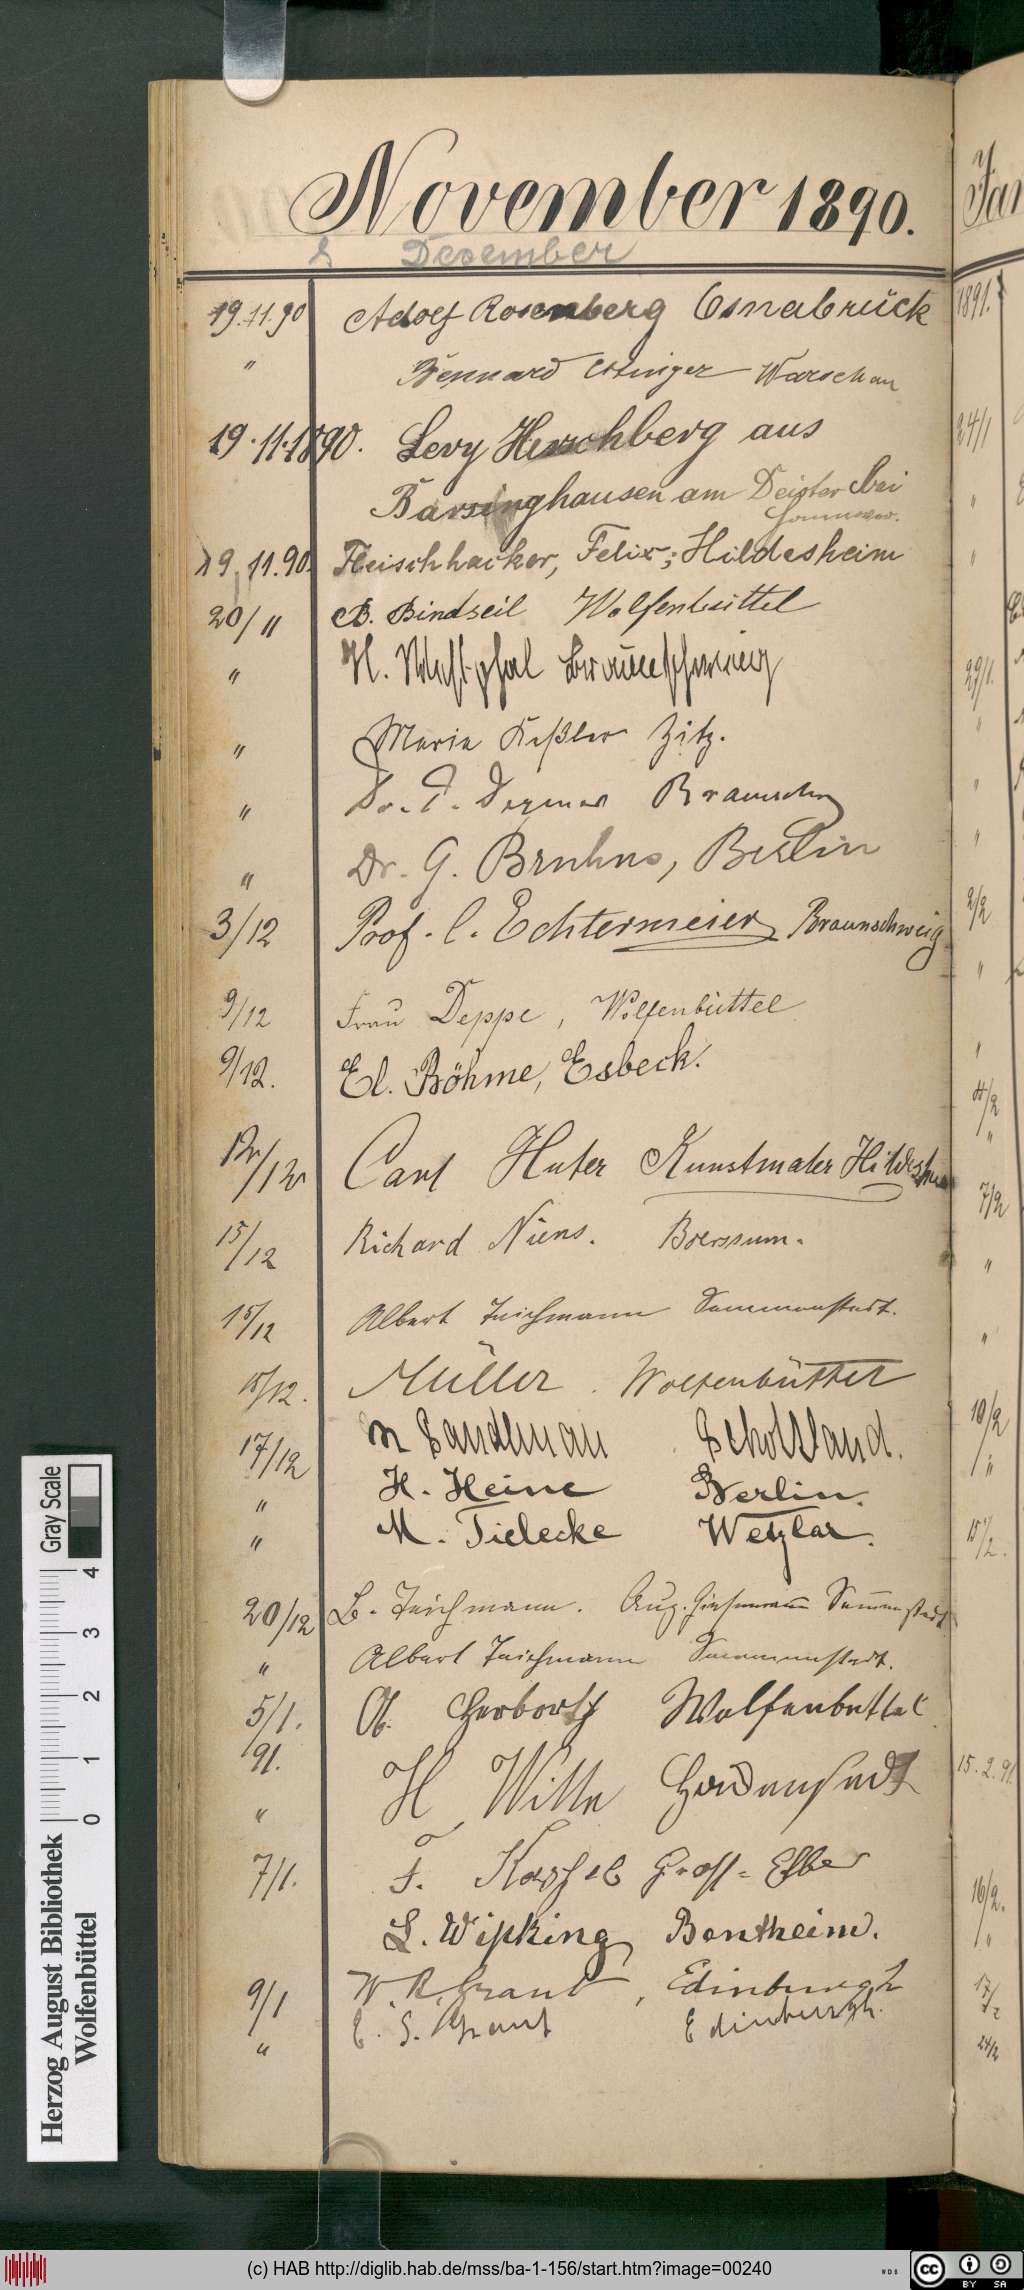 November 1890.
& Dezember
19.11.90 Adolf Rosenberg Osnabrück
" Bernhard Warschau
19.11.1890. Levy Herschberg aus
Barsinghausen am Deister bei
Hannover.
19.11.90. Fleischhacker, Felix; Hildesheim
20/11 B. Bindseil Wolfenbüttel
" H. Westphal Braunschweig
" Maria Keßler Zitz.
" Dr. Braunschw
" Dr. G. Bruhns, Berlin
3/12 Prof. C. Echtermeier Braunschweig
9/12 Frau Deppe, Wolfenbüttel
9/12. El. Böhme, Esbeck.
12/12 Carl Huter Kunstmaler Hildesheim
15/12 Richard Niens. Boerssum.
15/12 Albert Teichmann Semmenstedt.
15/12. Müller. Wolfenbüttel
17/12 M Sandlman Schottland.
" H. Heine Berlin.
" M. Tielecke Wetzlar.
20/12 L. Teichmann. Aug. Semmenstedt
" Albert Teichmann Semmenstedt.
5/1. Herbort Wolfenbüttel
91.
" H Witte
7/1. F. Gross-
L. Wipking Bentheim.
9/1 W. R. Grant, Edinburgh
" E. S. Grant Edinburgh.
Jan
1891.
24/1
"
"
29/1.
"
"
"
2/2
"
"
4/2
"
7/2
"
"
10/2
"
15/2.
15.2.91.
16/2.
"
17/2
24/2
Herzog August Bibliothek
Wolfenbüttel
0 1 2 3 4
Gray Scale
(c) HAB http://diglib.hab.de/mss/ba-1-156/start.htm?image=00240
WDB
cc BY SA